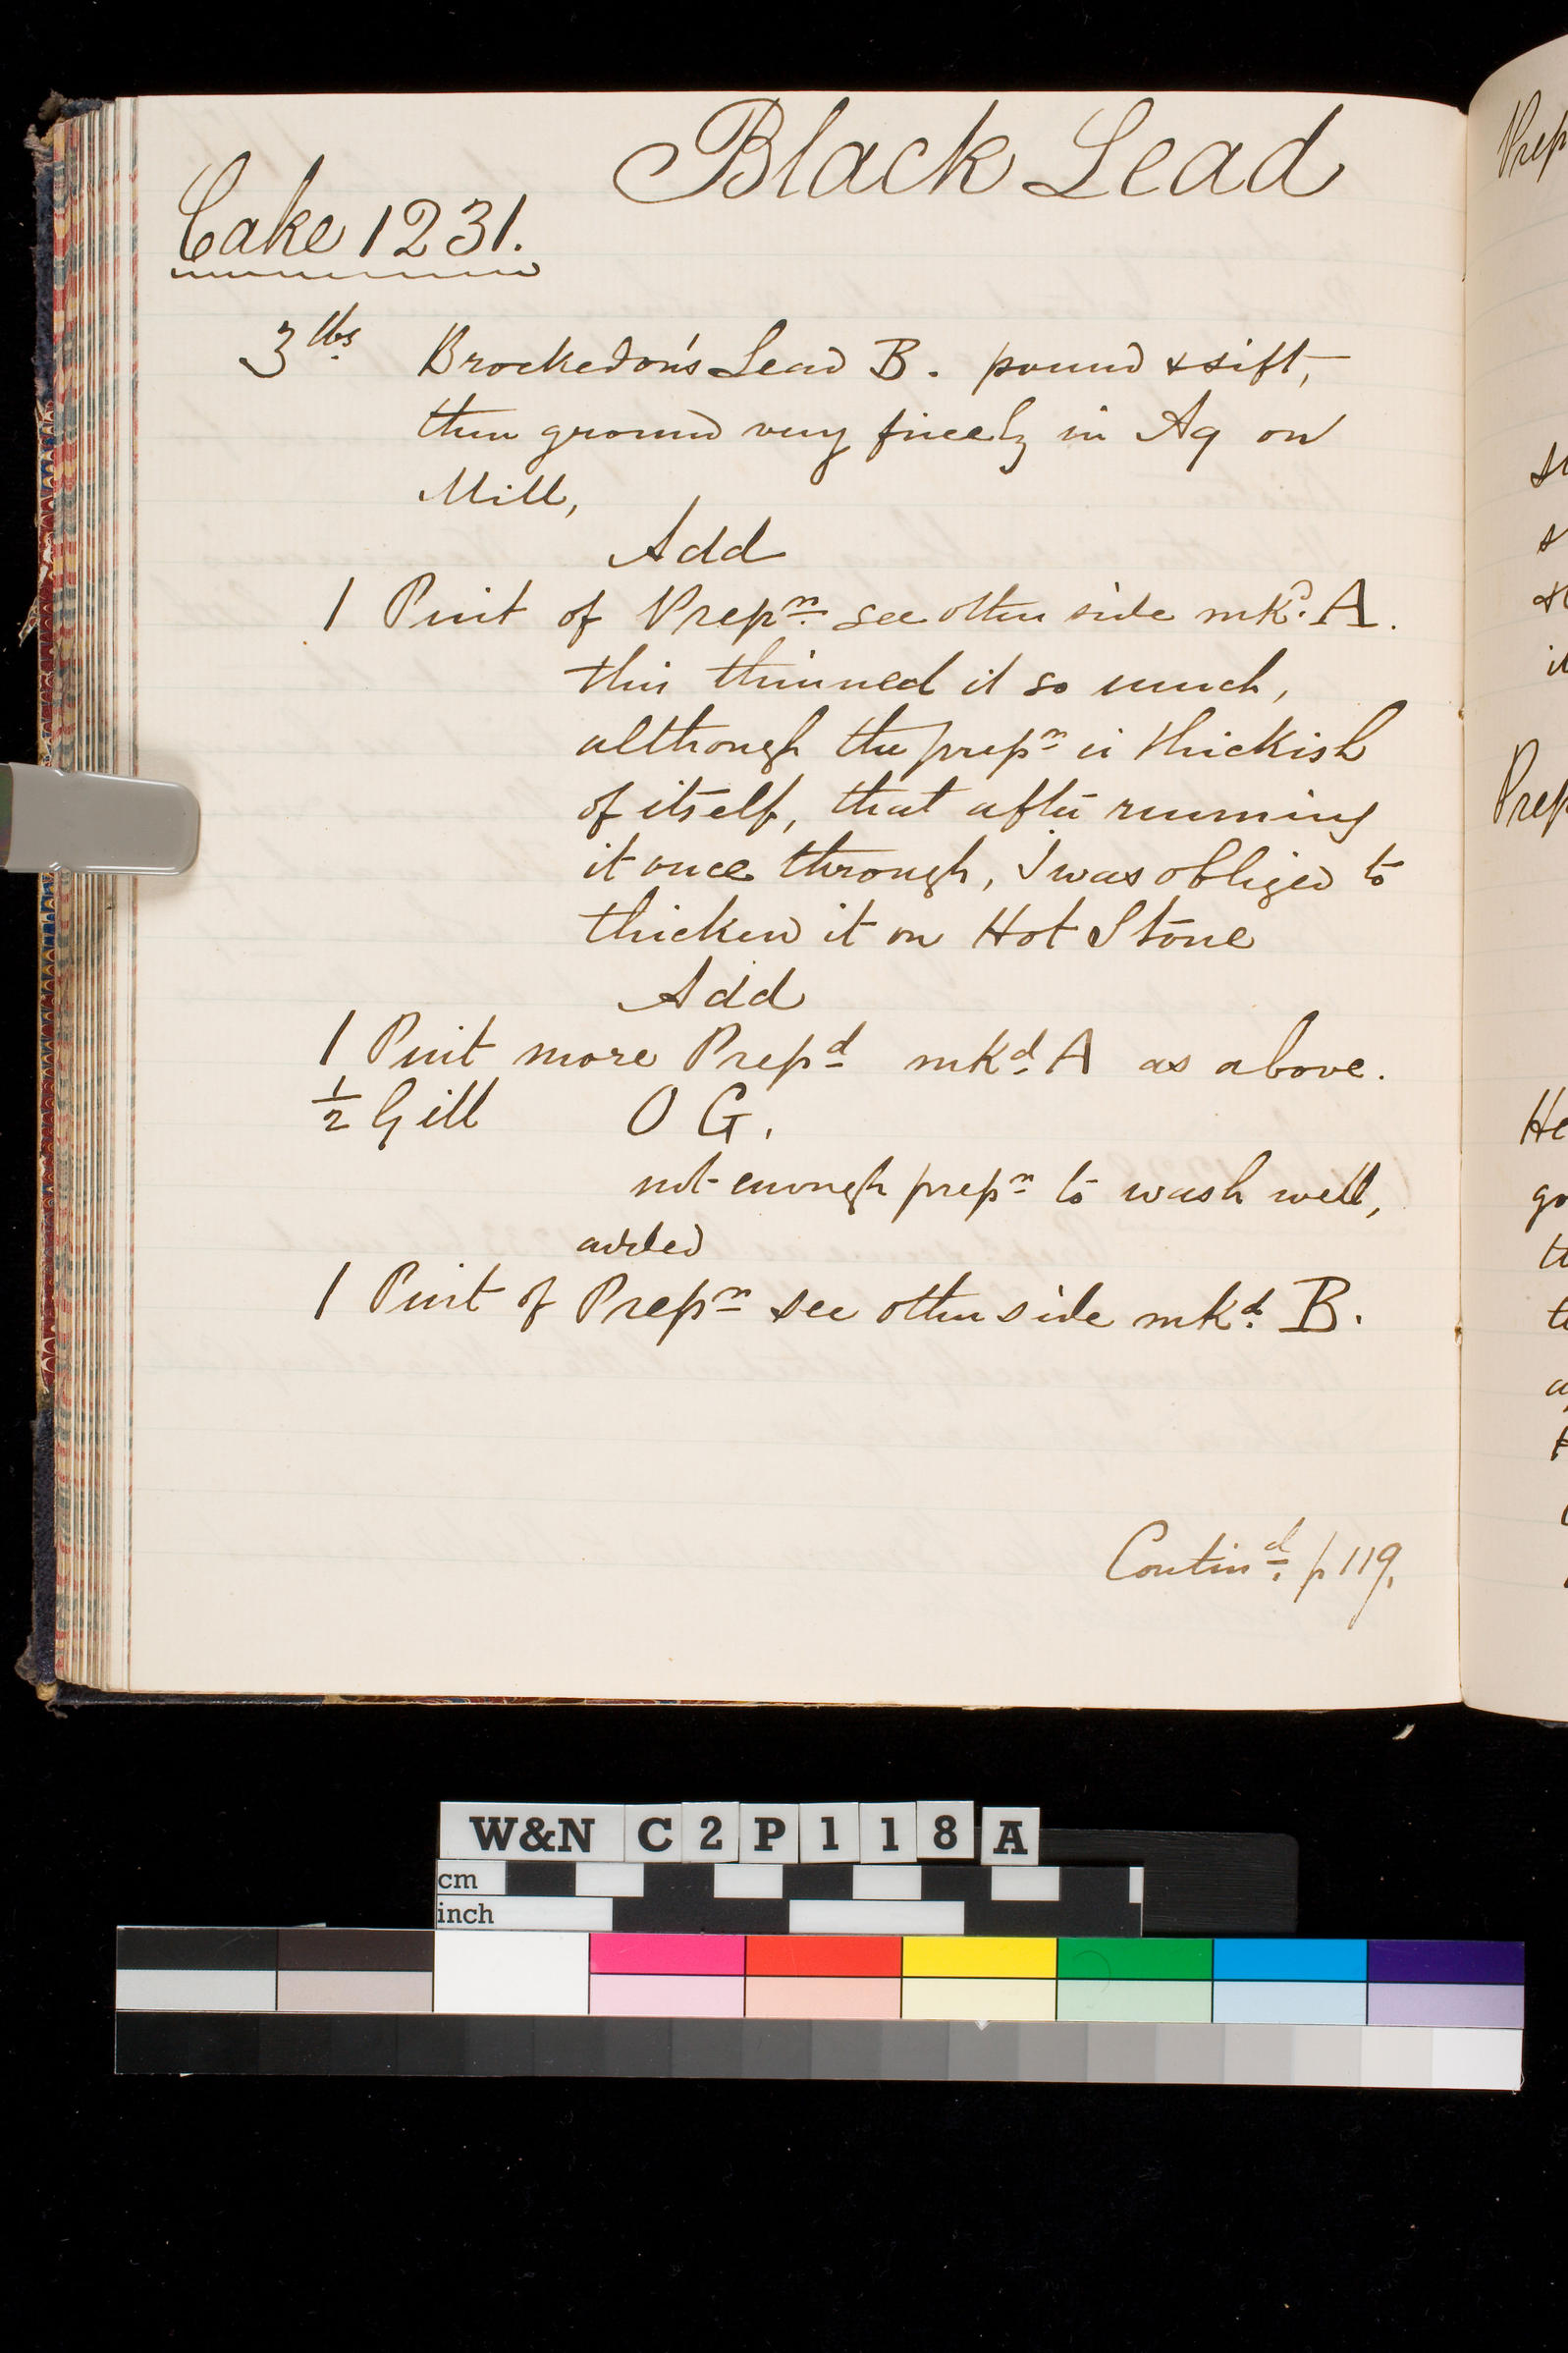 Black Lead
Cake 1231.
3 lbs Brockedon's Lead B. pound & sift,
then ground very finely in Aq on
Mill,
Add
1 Pint of Prepn see other side mkd. A.
this thinned it so much,
although the prepn is thickish
of itself, that after running
it once through, I was obliged to
thicken it on Hot Stone
Add
1 Pint more Prepd mkd A as above.
1/2 Gill O G.
not enough prepn to wash well,
added
1 Pint of Prepn see other side mkd. B.
Contind. p 119.
Prep
Prep
He
go
W&N C2P118A
cm
inch